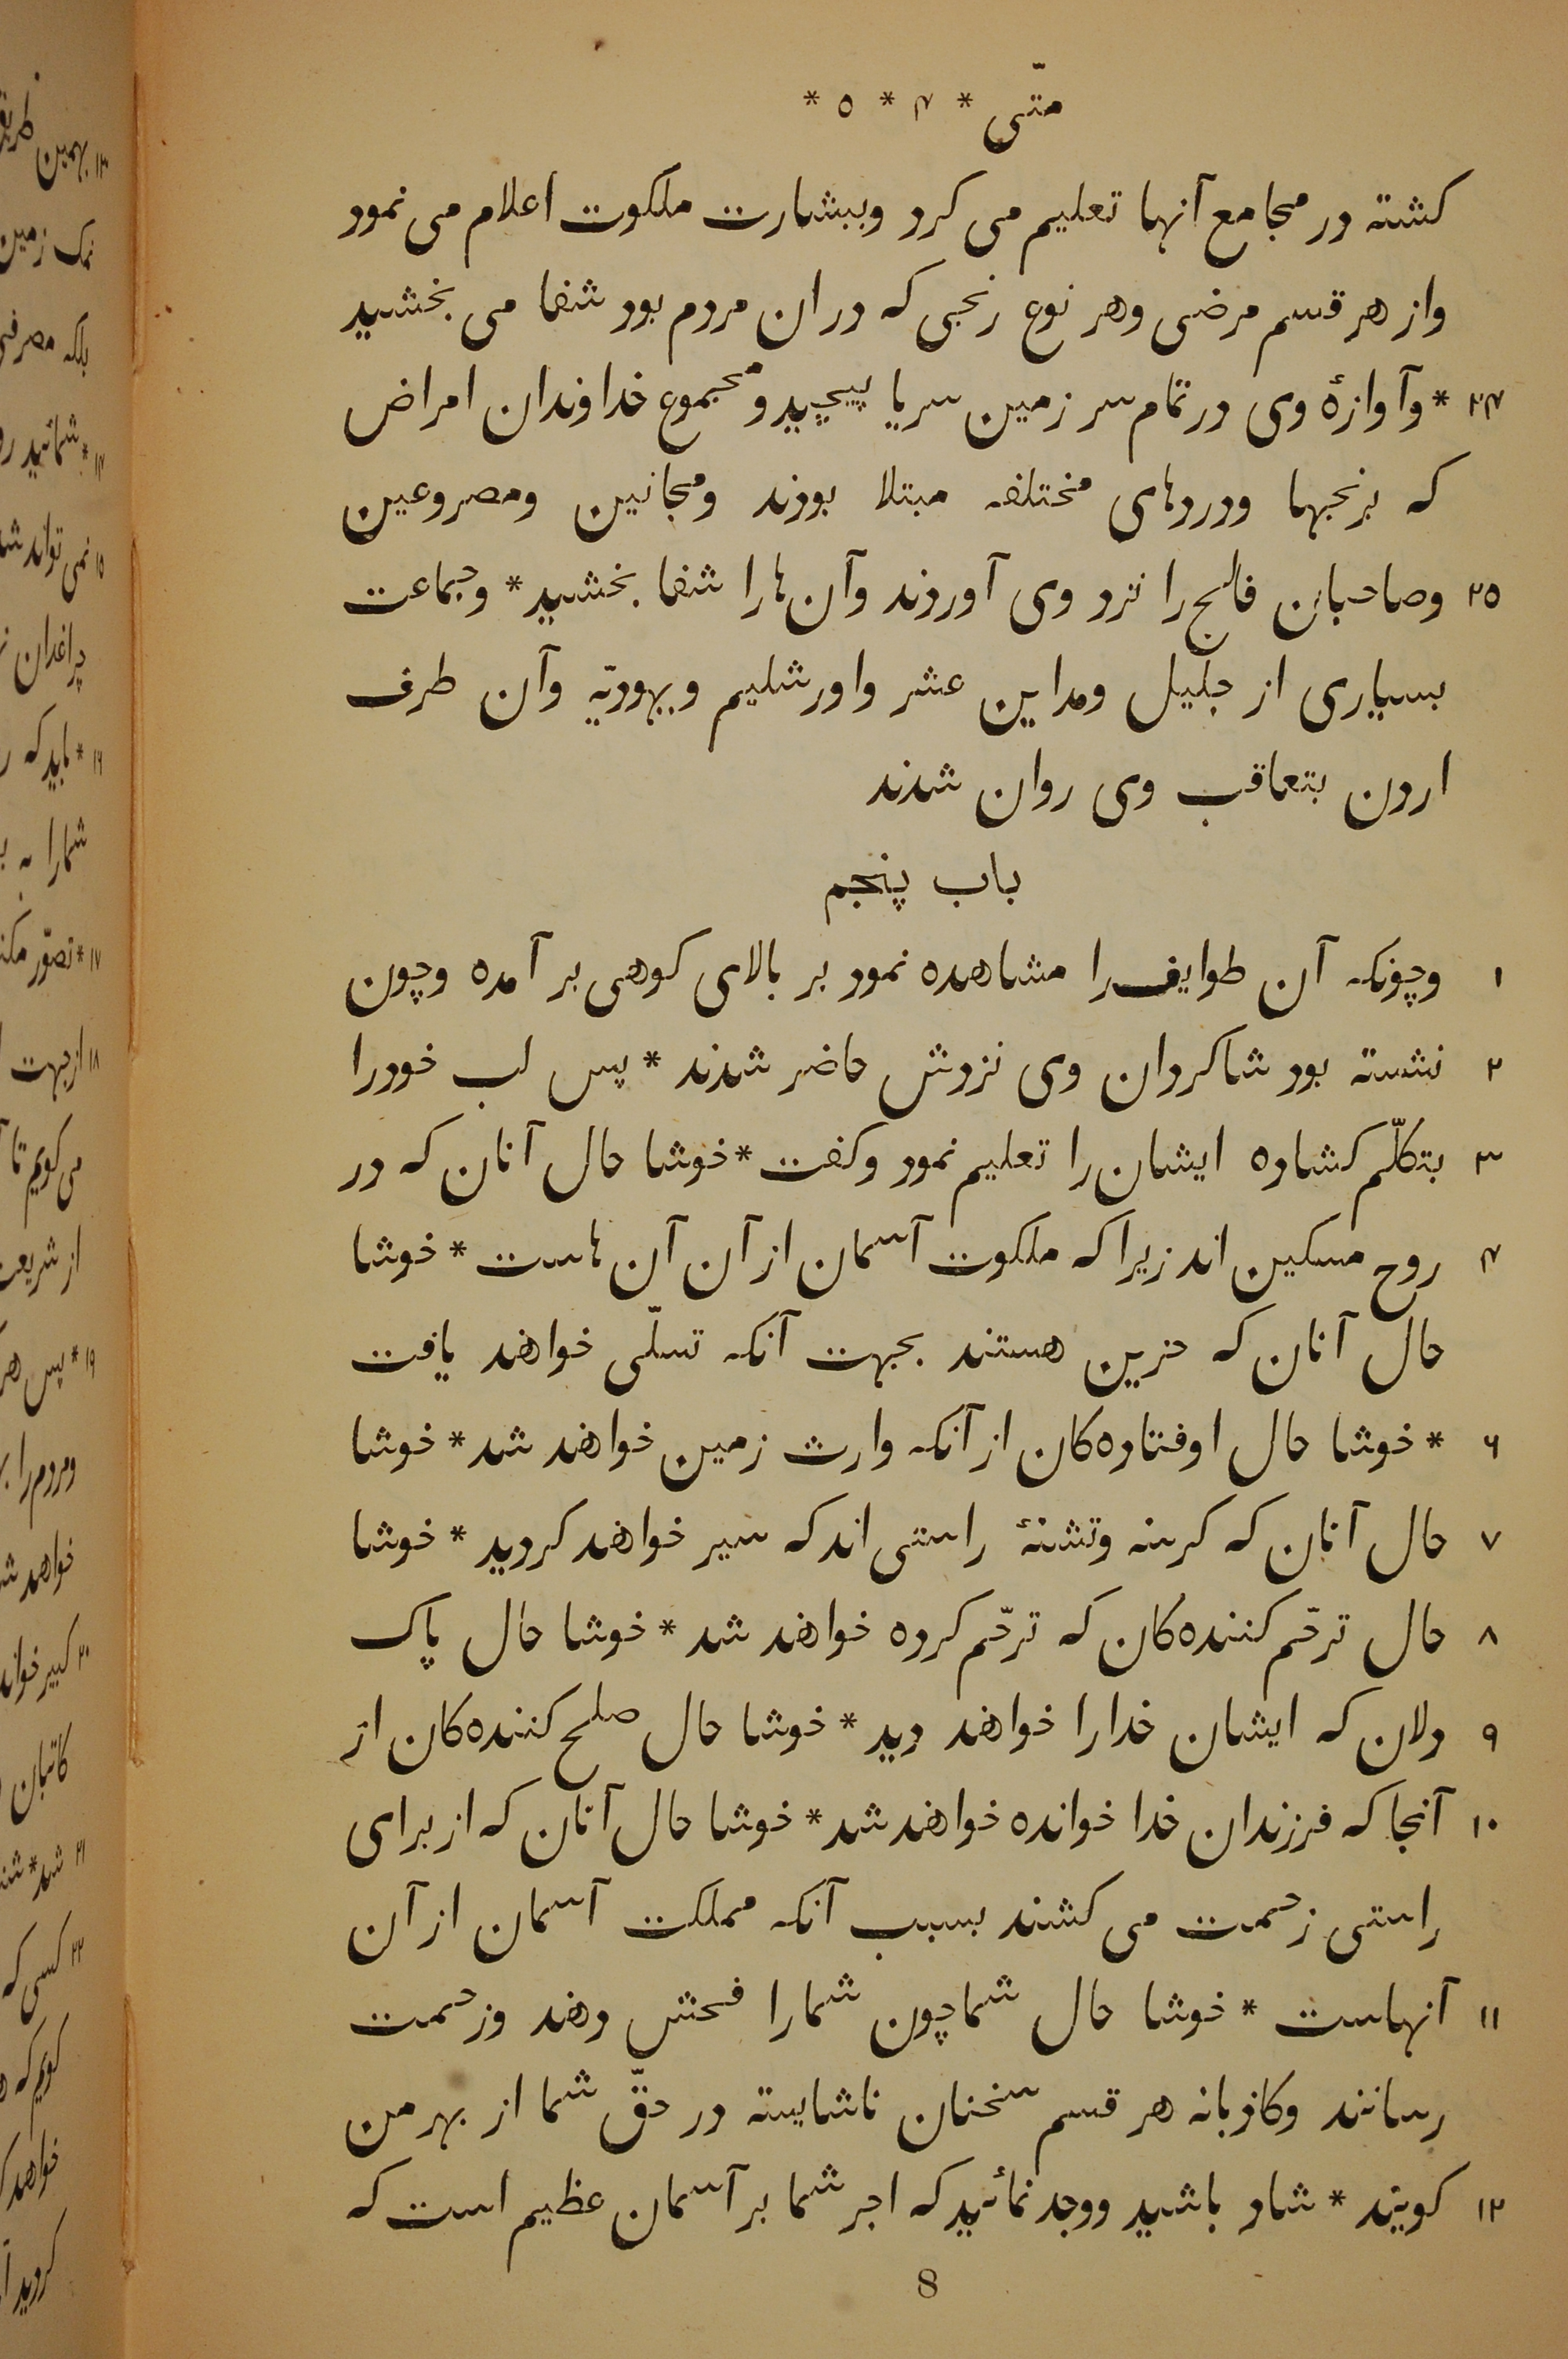 متّی * ۴ * ۵ *
کشته در مجامع آنها تعلیم می کرد وببشارت ملکوت اعلام می نمود
واز هر قسم مرضی وهر نوع رنجی که در ان مردم بود شفا می بخشید
۲۴ * وآوازهٔ وی در تمام سر زمین سریا پیچید ومجموع خداوندان امراض
که برنجها ودردهای مختلفه مبتلا بودند ومجانین ومصروعین
۲۵ وصاحبان فالج را نزد وی آوردند وآن ها را شفا بخشید * وجماعت
بسیاری از جلیل ومداین عشر واورشلیم ویهودیّه وآن طرف
اردن بتعاقب وی روان شدند
باب پنجم
۱ وچونکه آن طوایف را مشاهده نمود بر بالای کوهی بر آمده وچون
۲ نشسته بود شاکردان وی نزدش حاضر شدند * پس لب خودرا
۳ بتکلّم کشاده ایشان را تعلیم نمود وکفت * خوشا حال آنان که در
۴ روح مسکین اند زیرا که ملکوت آسمان از آن آن هاست * خوشا
حال آنان که حزین هستند بجهت آنکه تسلّی خواهند یافت
۶ * خوشا حال اوفتاده کان از آنکه وارث زمین خواهند شد * خوشا
۷ حال آنان که کرسنه وتشنهٔ راستی اند که سیر خواهند کردید * خوشا
۸ حال ترحّم کننده کان که ترحّم کرده خواهند شد * خوشا حال پاک
۹ دلان که ایشان خدا را خواهند دید * خوشا حال صلح کننده کان از
۱۰ آنجا که فرزندان خدا خوانده خواهند شد * خوشا حال آنان که از برای
راستی زحمت می کشند بسبب آنکه مملکت آسمان از آن
۱۱ آنهاست * خوشا حال شما چون شما را فحش دهند وزحمت
رسانند وکاذبانه هر قسم سخنان ناشایسته در حقّ شما از بهر من
۱۲ کویند * شاد باشید ووجد نمائید که اجر شما بر آسمان عظیم است که
8